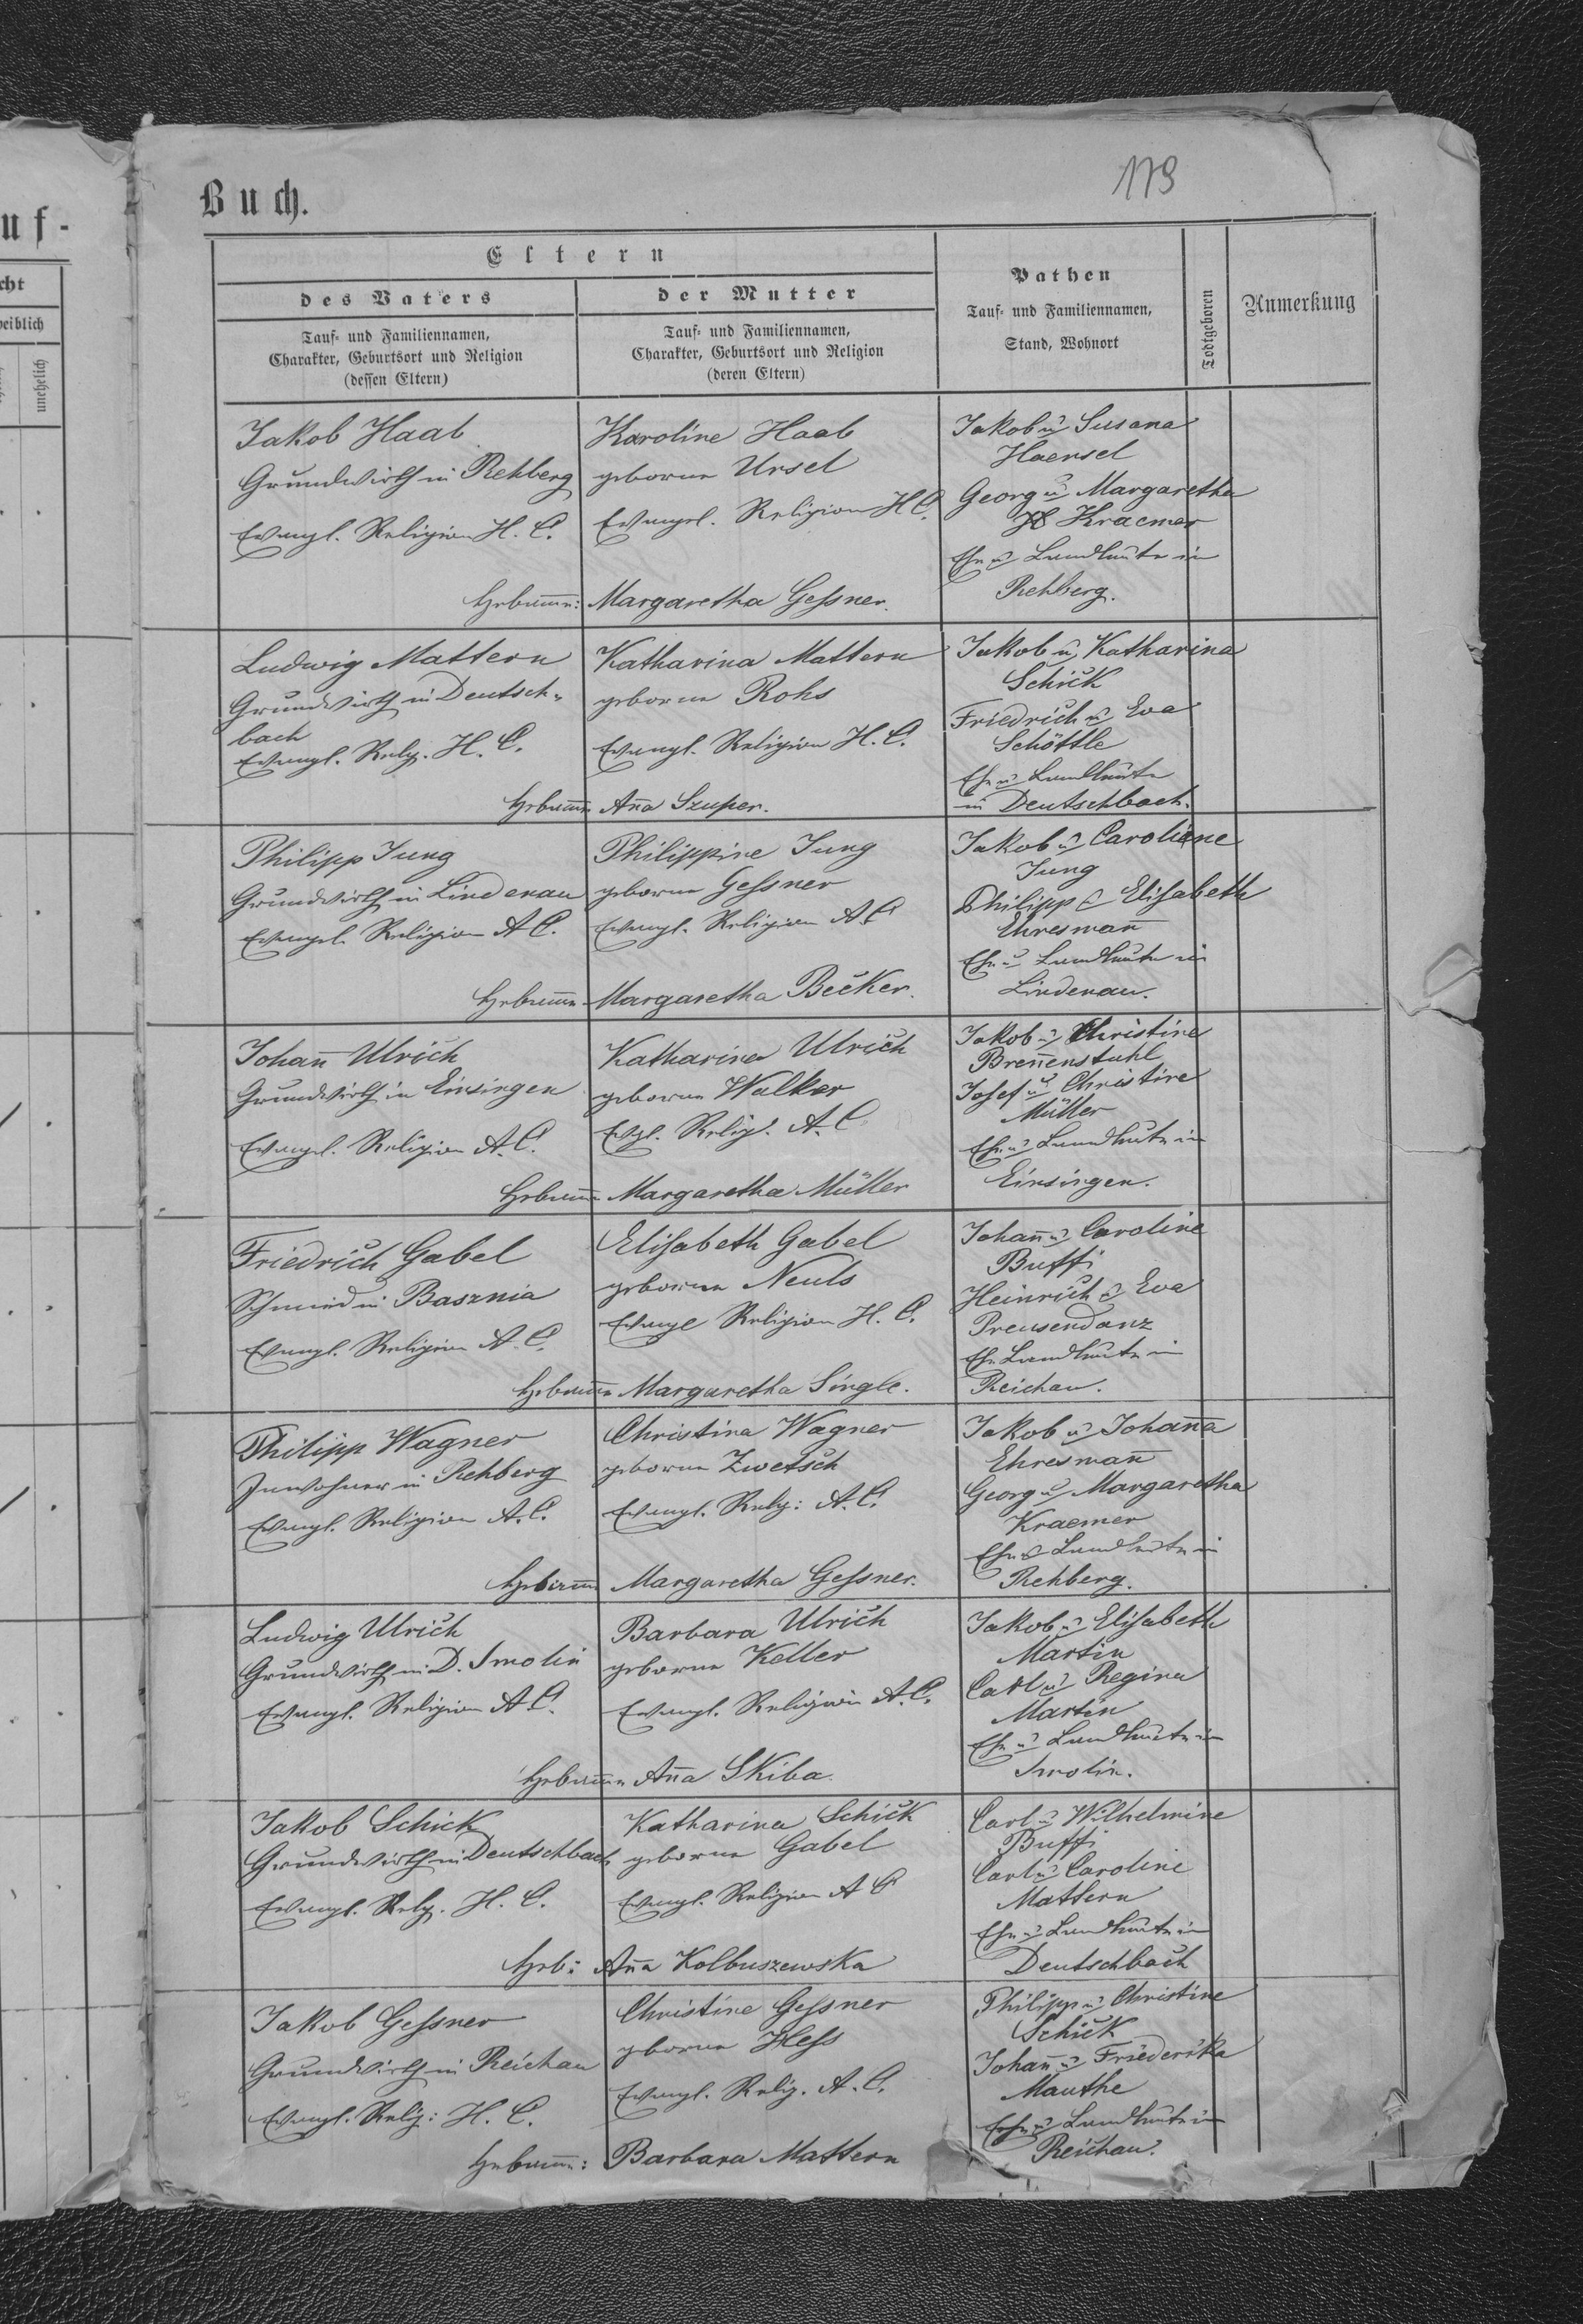 uf-
cht
weiblich
unehelich
Buch.
179
Eltern
des Vaters
Tauf- und Familiennamen,
Charakter, Geburtsort und Religion
(dessen Eltern)
der Mutter
Tauf- und Familiennamen,
Charakter, Geburtsort und Religion
(deren Eltern)
Pathen
Tauf- und Familiennamen,
Stand, Wohnort
Todtgeboren
Anmerkung
Jakob Haab
Grundwirth in Rehberg
Evangl. Religion H. C.
Karoline Haab
geborne Ursel
Evangel. Religion H C.
Hebamme: Margaretha Geßner.
Jakob u Susana
Haensel
Georg u Margaretha
Kraemer
Ehe u Landleute in
Rehberg.
Ludwig Mattern
Grundwirth in Deutsch-
bach
Evangl. Relg. H. C.
Katharina Mattern
geborne Rohs
Evangl. Religion H. C.
Hebamme Anna Szuper.
Jakob u Katharina
Schick
Friedrich u Eva
Schöttle
Ehe u Landleute
in Deutschbach.
Philipp Jung
Grundwirth in Lindenau
Evangel. Religion A C.
Philippine Jung
geborne Geßner
Evangl. Religion A C
Hebamme Margaretha Becker.
Jakob u Caroliene
Jung
Philipp u Elisabeth
Ehresmann
Ehe u Landleute in
Lindenau.
Johann Ulrich
Grundwirth in Einsingen
Evangel. Religion A. C.
Katharina Ulrich
geborne Walker
Evgl. Relig. A. C
Hebamme Margaretha Müller
Jakob u Christine
Brennenstuhl
Josef u Christine
Müller
Ehe u Landleute in
Einsingen.
Friedrich Gabel
Schmied in Basznia
Evangl. Religion A. C.
Elisabeth Gabel
geborne Neuls
Evangl Religion H. C.
Hebamme Margaretha Single.
Johann u Caroline
Buffi
Heinrich u Eva
Preusendanz
Ehe Landleute in
Reichau.
Philipp Wagner
Inwohner in Rehberg
Evangl. Religion A. C.
Christina Wagner
geborne Zwetsch
Evangl. Relg: A. C.
Hebamme Margaretha Geßner.
Jakob u Johanna
Ehresmann
Georg u Margaretha
Kraemer
Ehe u Landleute in
Rehberg.
Ludwig Ulrich
Grundwirth in D. Smolin
Evangl. Religion A C.
Barbara Ulrich
geborne Keller
Evangl. Religion A. C.
Hebamme Anna Skiba.
Jakob u Elisabeth
Martin
Carl u Regina
Martin
Ehe u Landleute in
Smolin.
Jakob Schick
Grundwirth in Deutschbach
Evangl. Relg. H. C.
Katharina Schick
geborne Gabel
Evangl. Religion A C
Heb: Anna Kolbuszewska
Carl u Wilhelmine
Buffi
Carl u Caroline
Mattern
Ehe u Landleute in
Deutschbach
Jakob Geßner
Grundwirth in Reichau
Evangl. Relig: H. C.
Christine Geßner
geborne Heß
Evangl. Relig. A. C.
Hebamme: Barbara Mattern
Philipp u Christine
Schick
Johann u Friederika
Mauthe
Ehe u Landleute in
Reichau.